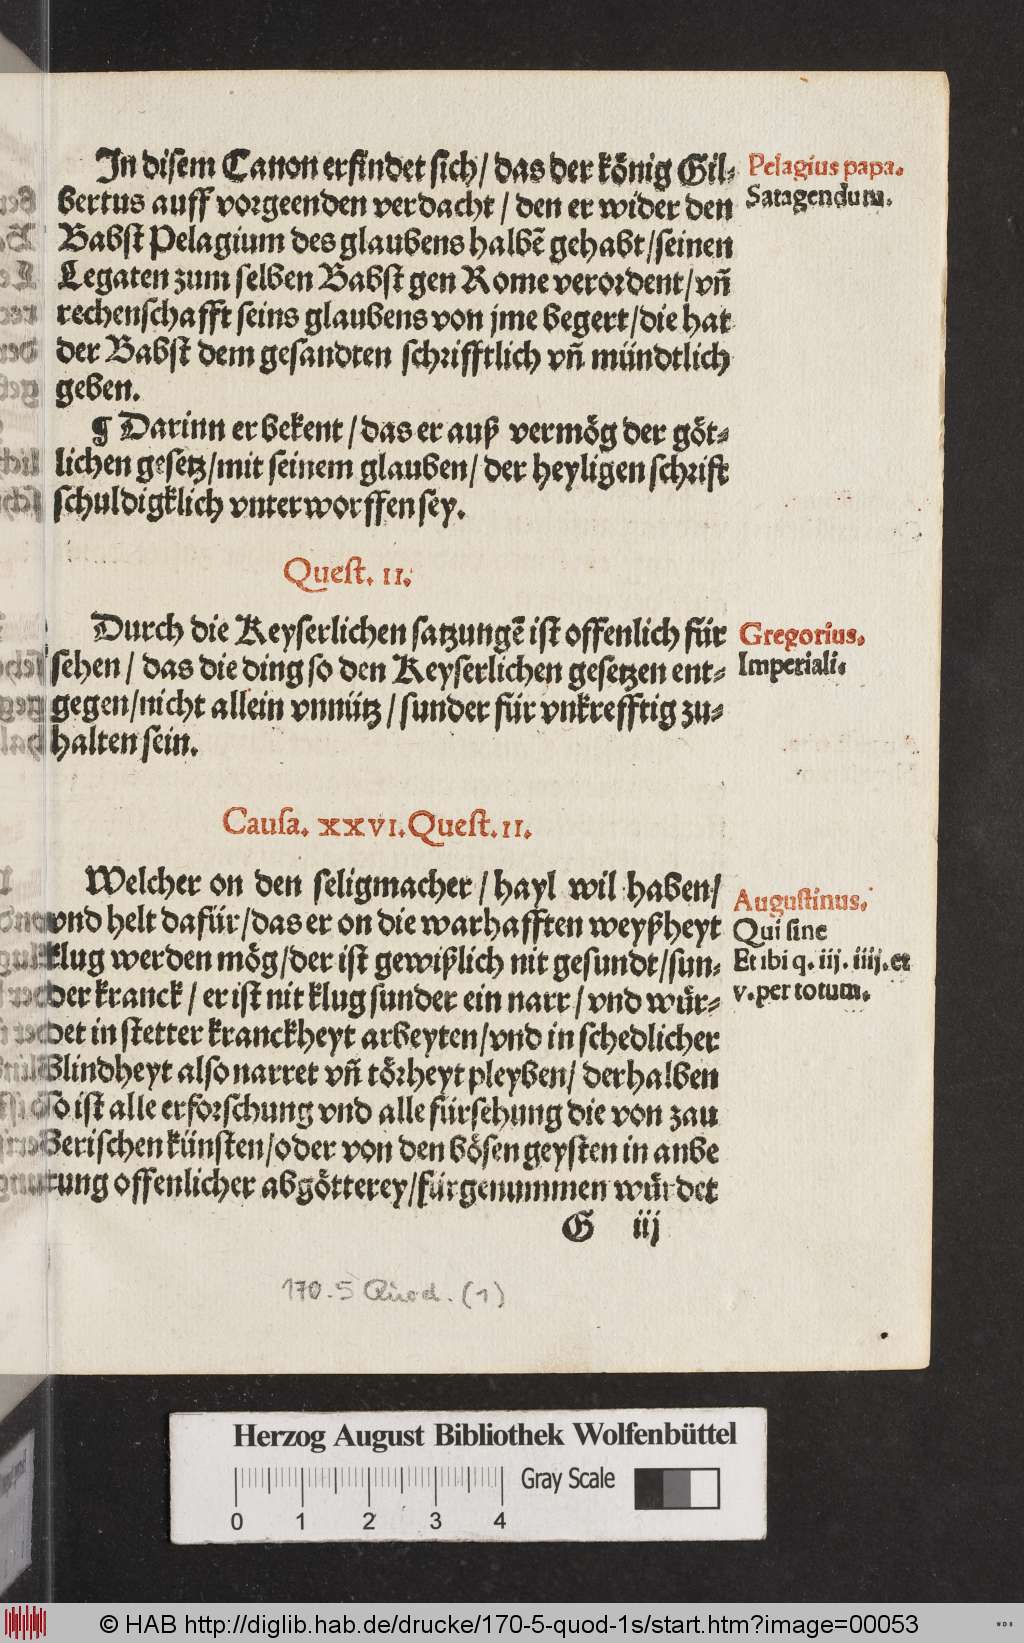 In disem Canon erfindet sich/ das der könig Gil⸗
bertus auff vorgeenden verdacht / den er wider den
Babst Pelagium des glaubens halbē gehabt/seinen
Legaten zum selben Babst gen Rome verordent/vñ
rechenschafft seins glaubens von jme begert/die hat
der Babst dem gesandten schrifftlich vñ mündtlich
geben.
¶ Darinn er bekent / das er auß vermög der göt⸗
lichen gesetz/mit seinem glauben/ der heyligen schrift
schuldigklich vnterworffen sey.
Pelagius papa.
Satagendum.
Quest. II.
Durch die Keyserlichen satzungē ist offenlich für
sehen / das die ding so den Keyserlichen gesetzen ent⸗
gegen/nicht allein vnnütz / sunder für vnkrefftig zu⸗
halten sein.
Gregorius.
Imperiali.
Causa. XXVI. Quest. II.
Welcher on den seligmacher / hayl wil haben/
vnd helt dafür/das er on die warhafften weyßheyt
klug werden mög/der ist gewißlich nit gesundt/sun⸗
der kranck / er ist nit klug sunder ein narr / vnd wür⸗
det in stetter kranckheyt arbeyten/vnd in schedlicher
Blindheyt also narret vñ törheyt pleyben/ derhalben
so ist alle erforschung vnd alle fürsehung die von zau
Berischen künsten/oder von den bösen geysten in anbe
tung offenlicher abgötterey/fürgenummen würdet
Augustinus.
Qui sine
Et ibi q. iij. iiij. et
v. per totum.
G iij
170.5 Quod. (1)
Herzog August Bibliothek Wolfenbüttel
Gray Scale
0 1 2 3 4
© HAB http://diglib.hab.de/drucke/170-5-quod-1s/start.htm?image=00053